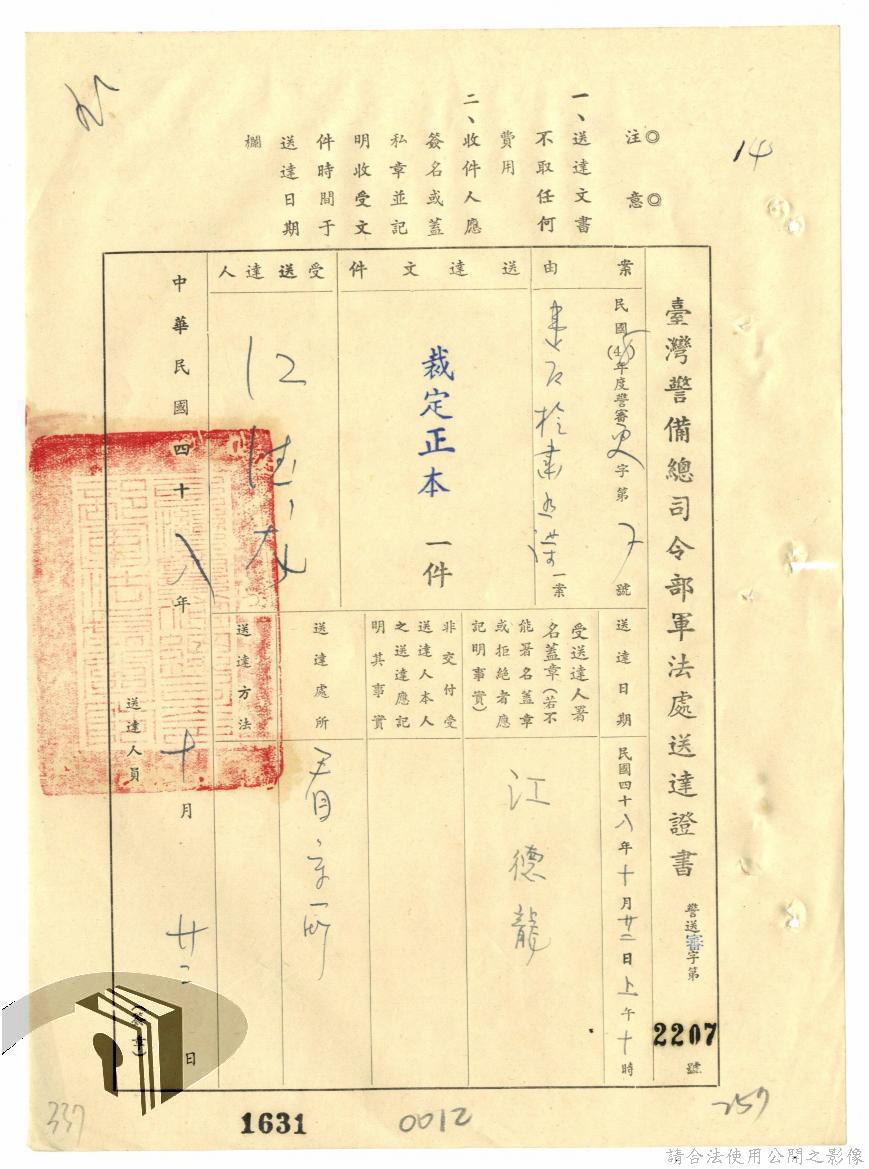 14
◎注意◎
一、送達文書
不取任何
費用
二、收件人應
簽名或蓋
私章並記
明收受文
件時間于
送達日期
欄
臺灣警備總司令部軍法處送達證書
警送審字第
2207
號
案由
民國(4)年度警審更字第號
一案
送達文件
裁定正本一件
受送達人
江德龍
送達日期
民國四十八年十月廿二日上午十時
受送達人署
名蓋章(若不
能署名蓋章
或拒絕者應
記明事實)
江德龍
非交付受
送達人本人
之送達應記
明其事實
送達處所
看守所
送達方法
中華民國四十八年十月廿二日
送達人員
(蓋章)
337
1631
0012
257
請合法使用公開之影像